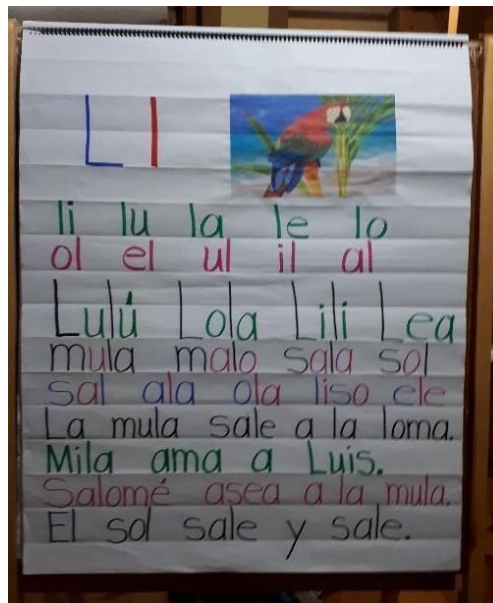 L l
li lu la le lo
ol el ul il al
Lulú Lola Lili Lea
mula malo sala sol
sal ala ola liso ele
La mula sale a la loma.
Mila ama a Luis.
Salomé asea a la mula.
El sol sale y sale.